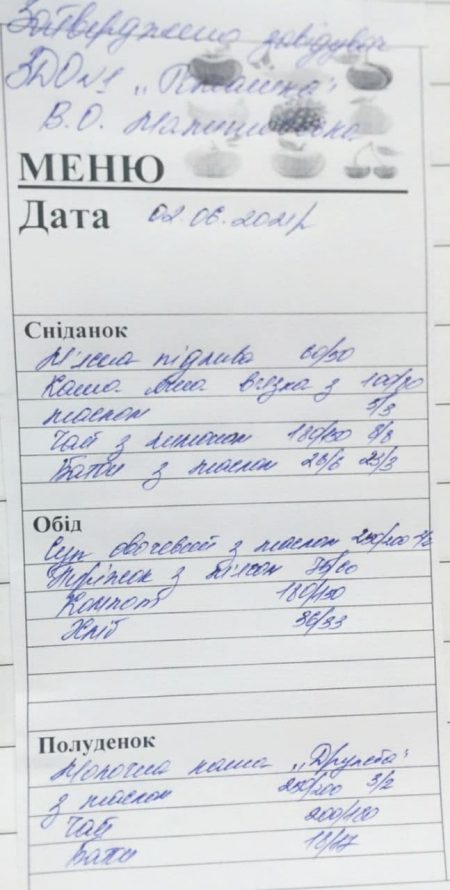 Затверджено завідувач
ЗДО №1 „Пташка"
В.О.
МЕНЮ
Дата 02.06.2021р
Сніданок
М'ясна підлива 60/50
Каша в'язка з
маслом 5/3
Чай з лимоном 180/150 8/6
Батон з маслом
Обід
Суп овочевий з маслом 250/200
Пиріжок з м'ясом
Компот 180/150
Хліб 36/33
Полуденок
Молочна каша „Дружба"
з маслом 250/200 3/2
Чай 200/180
Батон